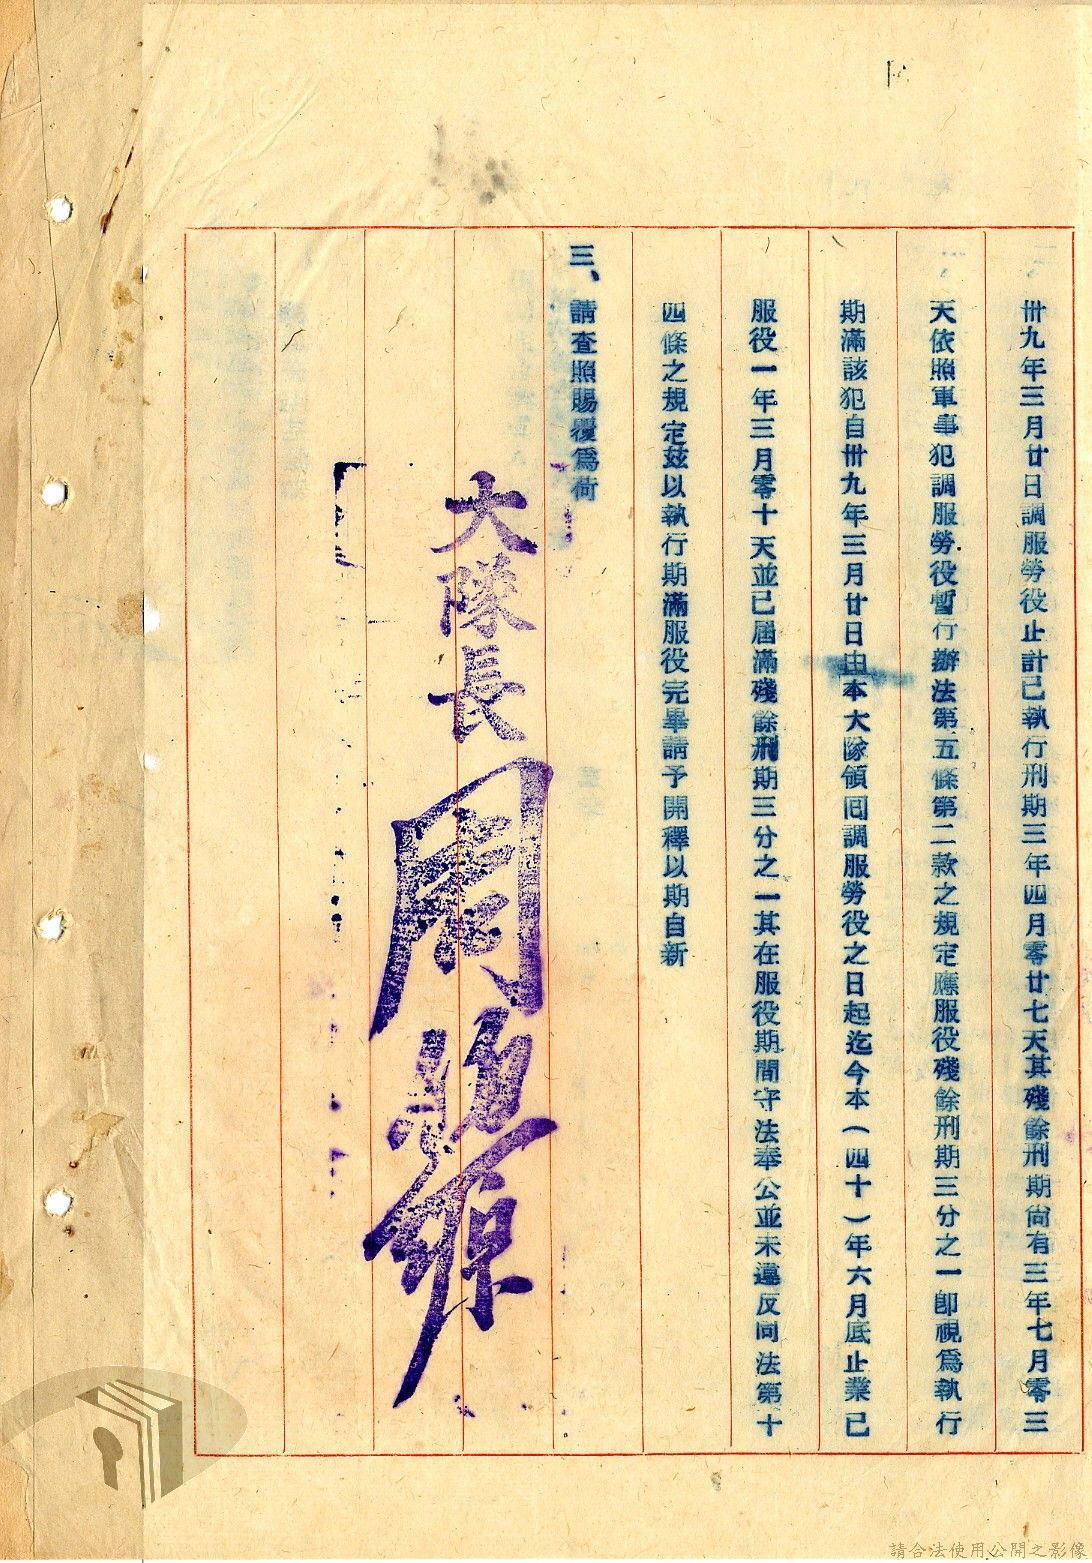 卅九年三月廿日調服勞役止計已執行刑期三年四月零廿七天其殘餘刑期尚有三年七月零三
天依照軍事犯調服勞役暫行辦法第五條第二款之規定應服役殘餘刑期三分之一卽視爲執行
期滿該犯自卅九年三月廿日由本大隊領回調服勞役之日起迄今本(四十)年六月底止業已
服役一年三月零十天並已屆滿殘餘刑期三分之一其在服役期間守法奉公並未違反同法第十
四條之規定玆以執行期滿服役完畢請予開釋以期自新
三、請查照賜覆爲荷
大隊長周
請合法使用公開之影像